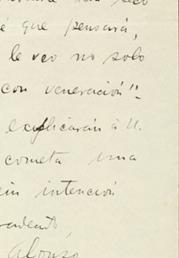 que pensará,
le veo no solo
con veneración"-
explicarán á U.
cometa una
sin intención
Alonso